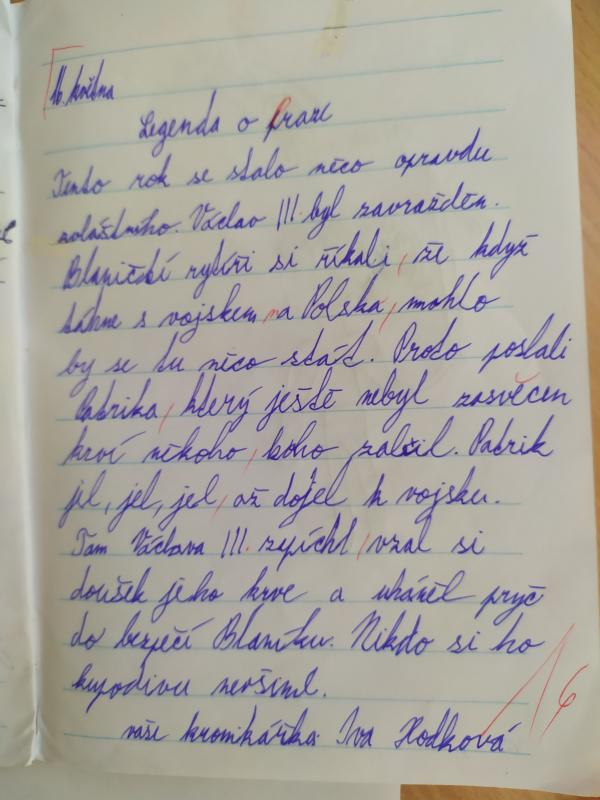 16. května
Legenda o Praze
Tento rok se stalo něco opravdu
zvláštního. Václav III. byl zavražděn.
Blaničtí rytíři si říkali, že když
táhne s vojskem na Polska, mohlo
by se tu něco stát. Proto poslali
Patrika, který ještě nebyl zasvěcen
krví někoho, koho zabil. Patrik
jel, jel, jel, až dojel k vojsku.
Tam Václava III. zapíchl, vzal si
doušek jeho krve a uháněl pryč
do bezpečí Blaníku. Nikdo si ho
kupodivu nevšiml.
vaše kronikářka Iva Hodková